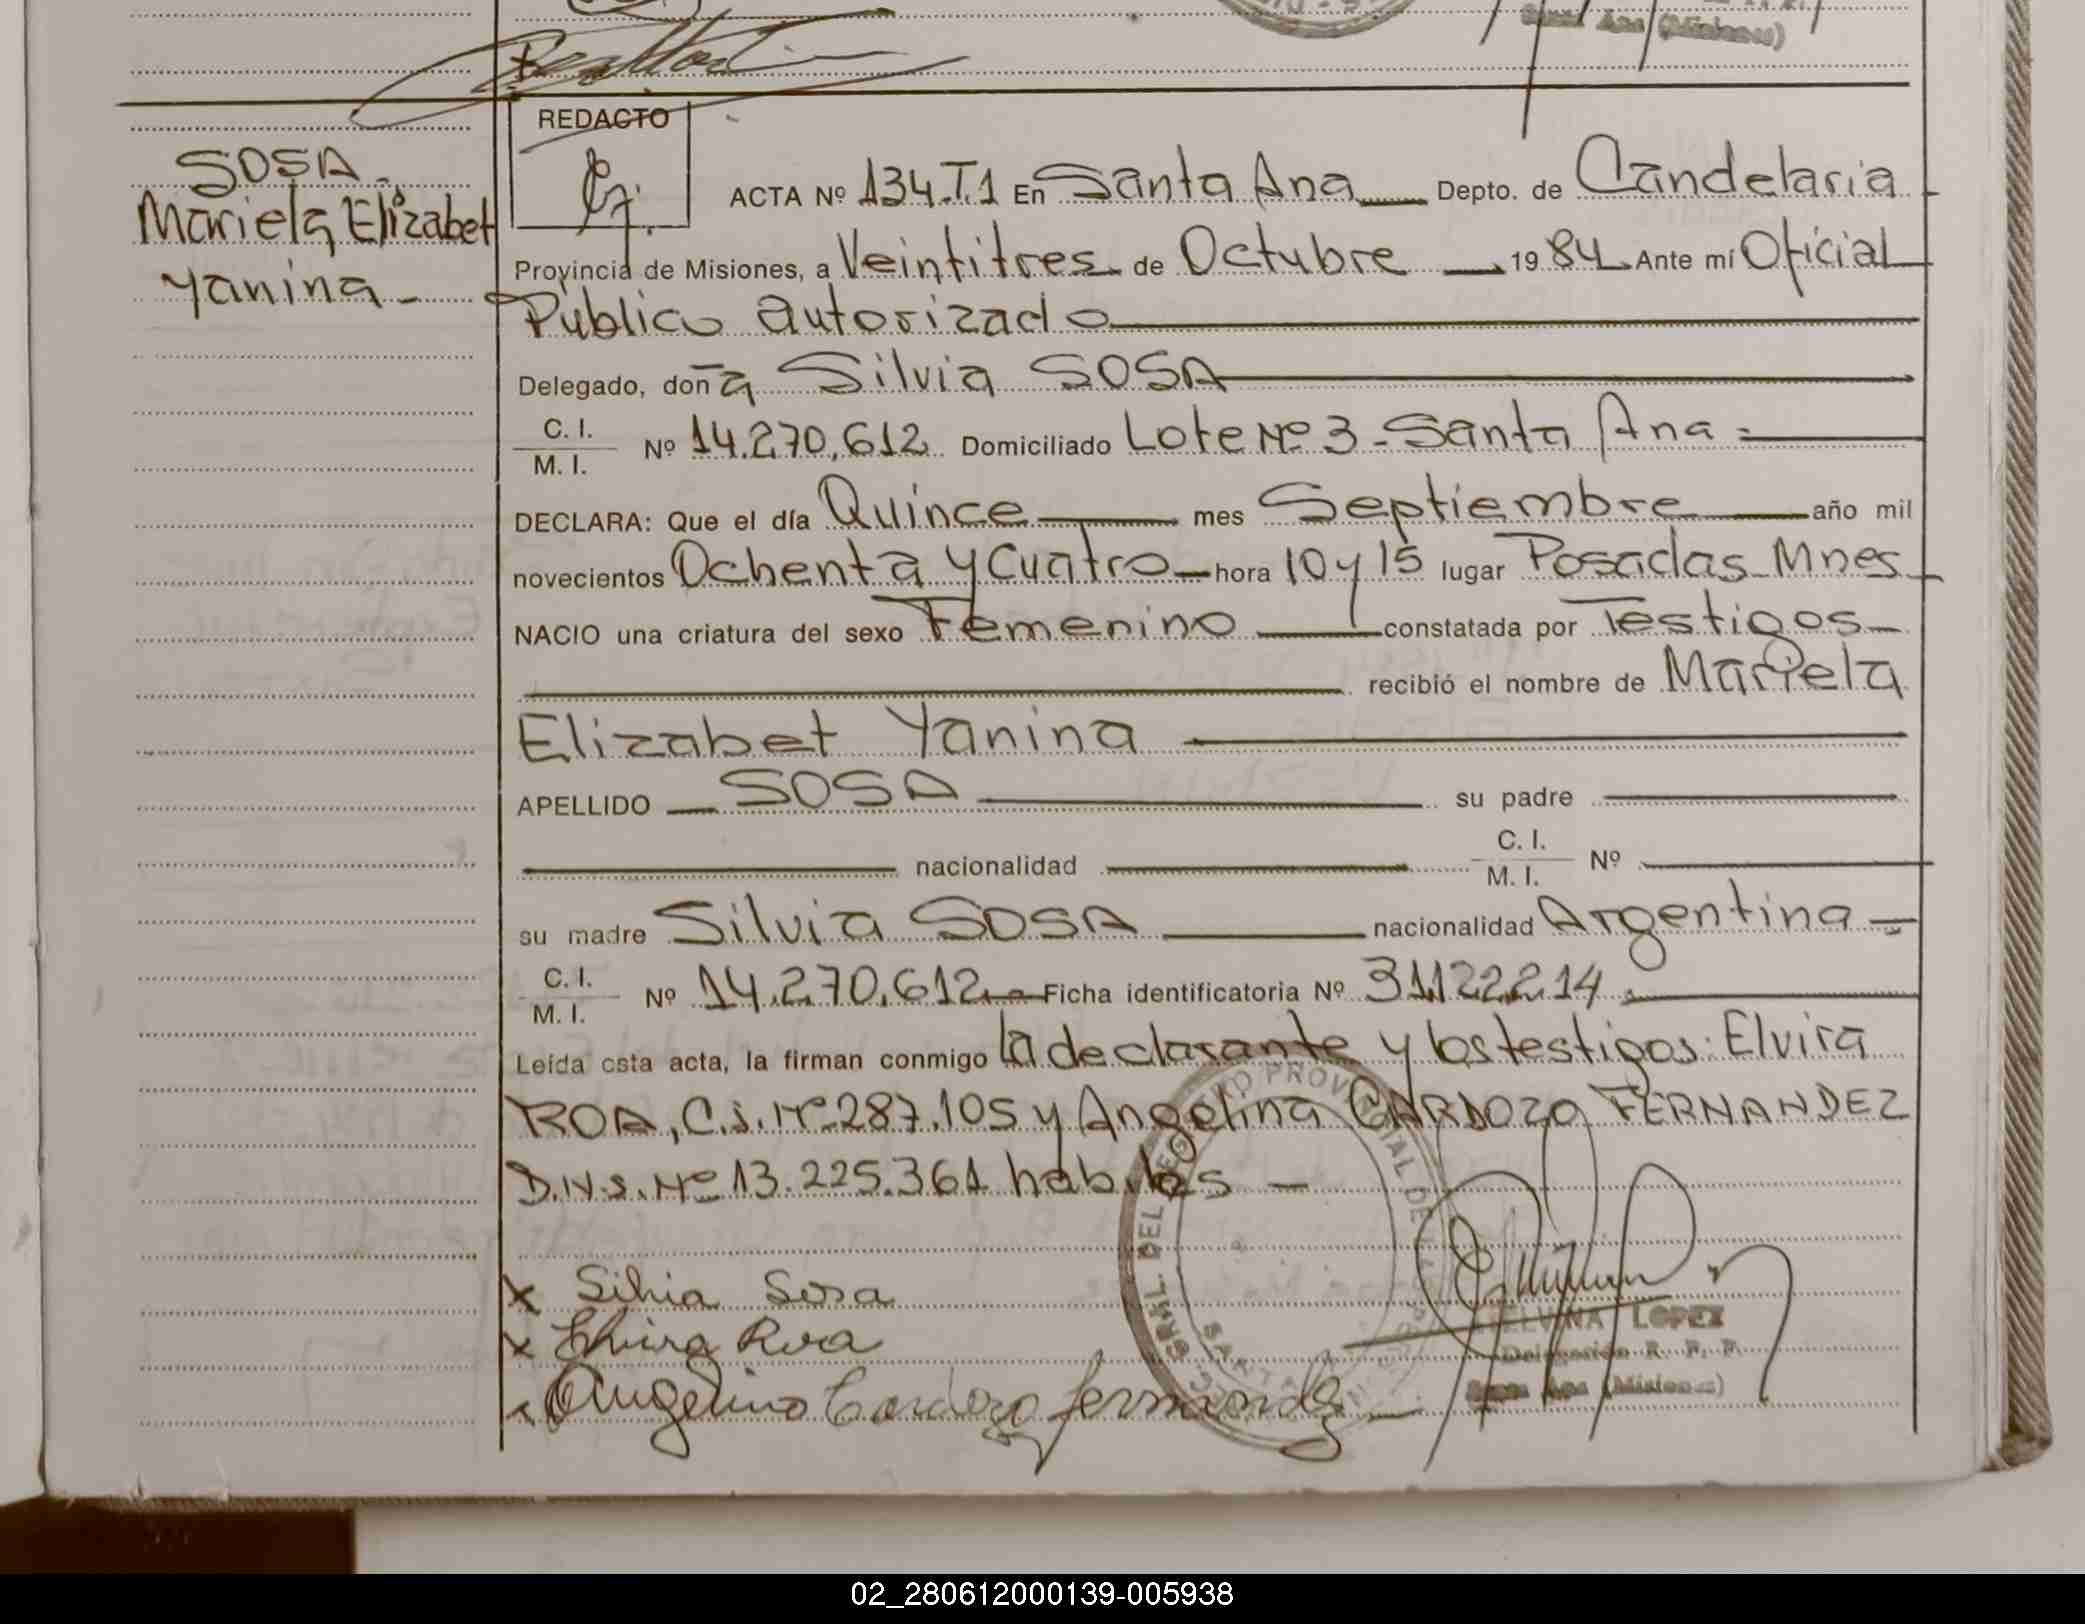 Santa Ana (Misiones)
REDACTO
SOSA
Mariela Elizabet
Yanina -
ACTA Nº 134.T.1 En Santa Ana Depto. de Candelaria
Provincia de Misiones, a Veintitres de Octubre 1984 Ante mí Oficial
Público autorizado
Delegado, doña Silvia SOSA
C. I.
M. I. Nº 14.270.612 Domiciliado Lote Nº 3 - Santa Ana
DECLARA: Que el día Quince mes Septiembre año mil
novecientos Ochenta y Cuatro hora 10 y 15 lugar Posadas Mnes
NACIO una criatura del sexo Femenino constatada por Testigos
recibió el nombre de Mariela
Elizabet Yanina
APELLIDO SOSA su padre
nacionalidad C. I.
M. I. Nº
su madre Silvia SOSA nacionalidad Argentina
C. I.
M. I. Nº 14.270.612 Ficha identificatoria Nº 31122214
Leída esta acta, la firman conmigo la declarante y los testigos: Elvira
ROA, C.I. Nº 287.105 y Angelina CARDOZO FERNANDEZ
D.N.I. Nº 13.225.361 habiles -
x Silvia Sosa
x Elvira Roa
x Angelina Cardozo Fernandez
ELVINA LOPEZ
Delegación R. P. P.
Santa Ana (Misiones)
02_280612000139-005938